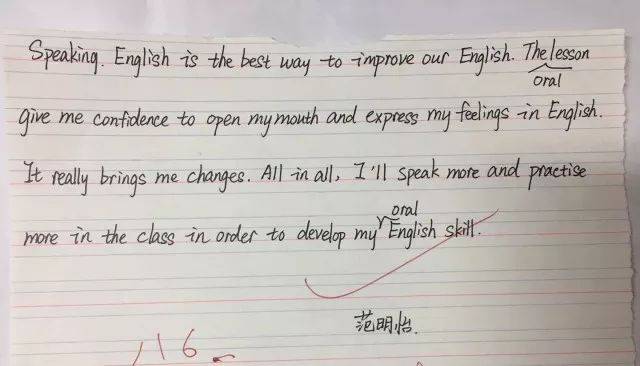 Speaking. English is the best way to improve our English. The lesson
oral
give me confidence to open my mouth and express my feelings in English.
It really brings me changes. All in all, I'll speak more and practise
oral
more in the class in order to develop my English skill.
范明怡.
116.